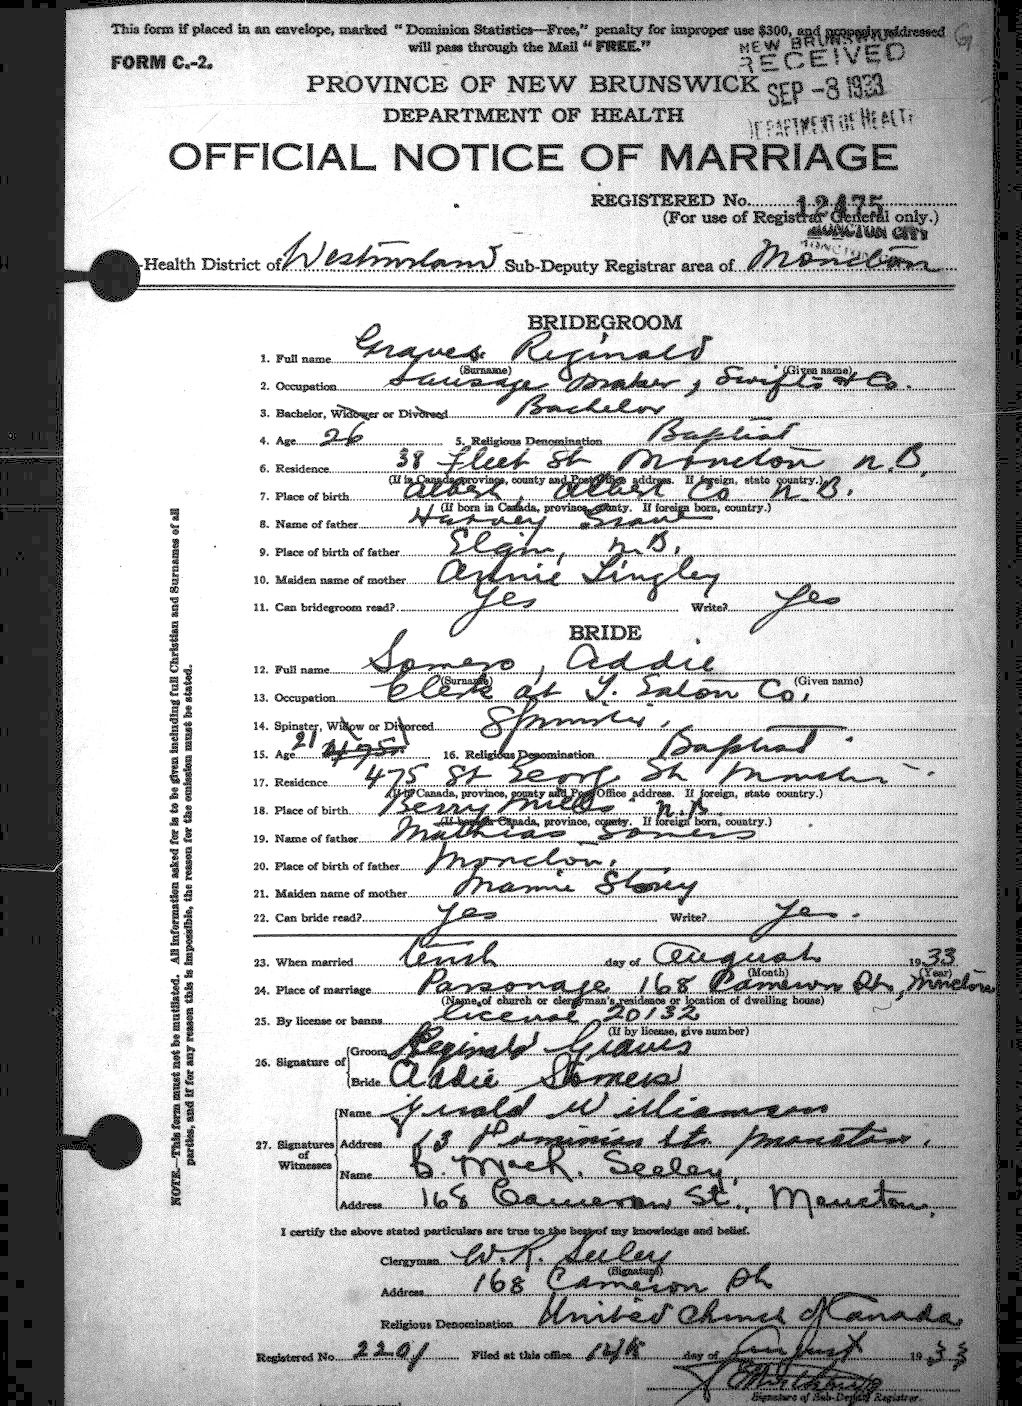 This form if placed in an envelope, marked "Dominion Statistics—Free," penalty for improper use $300, and properly addressed
will pass through the Mail "FREE."
FORM C.-2.
NEW BRUNSWICK
RECEIVED
SEP -8 1933
DEPARTMENT OF HEALTH
PROVINCE OF NEW BRUNSWICK
DEPARTMENT OF HEALTH
OFFICIAL NOTICE OF MARRIAGE
REGISTERED No. 12475
(For use of Registrar General only.)
MONCTON CITY
Health District of Westmorland Sub-Deputy Registrar area of Moncton
BRIDEGROOM
1. Full name Graves Reginald
(Surname) (Given name)
2. Occupation Sausage Maker, Swifts & Co.
3. Bachelor, Widower or Divorced Bachelor
4. Age 26 5. Religious Denomination Baptist
6. Residence 38 Fleet St Moncton N.B.
(If in Canada, province, county and Post Office address. If foreign, state country.)
7. Place of birth Albert, Albert Co N.B.
(If born in Canada, province, county. If foreign born, country.)
8. Name of father Harvey Graves
9. Place of birth of father Elgin, N.B.
10. Maiden name of mother Annie Lingley
11. Can bridegroom read? Yes Write? Yes
BRIDE
12. Full name Somers, Addie
(Surname) (Given name)
13. Occupation Clerk at T. Eaton Co.
14. Spinster, Widow or Divorced Spinster.
15. Age 21 16. Religious Denomination Baptist.
17. Residence 475 St George St Moncton
(If in Canada, province, county and Post Office address. If foreign, state country.)
18. Place of birth Berry Mills N.B.
(If born in Canada, province, county. If foreign born, country.)
19. Name of father Mathias Somers
20. Place of birth of father Moncton.
21. Maiden name of mother Mamie Storey
22. Can bride read? Yes Write? Yes.
23. When married tenth day of August 1933
(Month) (Year)
24. Place of marriage Parsonage 168 Cameron St, Moncton
(Name of church or clergyman's residence or location of dwelling house)
25. By license or banns license 20132
(If by license, give number)
26. Signature of Groom Reginald Graves
Bride Addie Somers
27. Signatures of Witnesses
Name Gerald Williamson
Address 63 Dominion St. Moncton.
Name B. MacK. Seeley,
Address 168 Cameron St., Moncton.
I certify the above stated particulars are true to the best of my knowledge and belief.
Clergyman W. K. Seeley
(Signature)
Address 168 Cameron St.
Religious Denomination United Church of Canada
Registered No. 2201 Filed at this office 14th day of August 1933
Signature of Sub-Deputy Registrar.
NOTE.—This form must not be mutilated. All information asked for is to be given including full Christian and Surnames of all
parties, and if for any reason this is impossible, the reason for the omission must be stated.